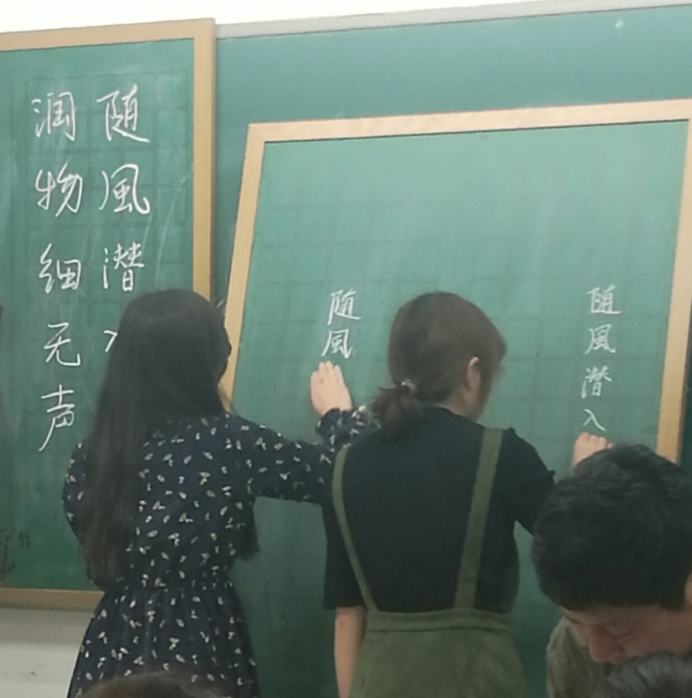 随風潜入
润物细无声
随風
随風潜入